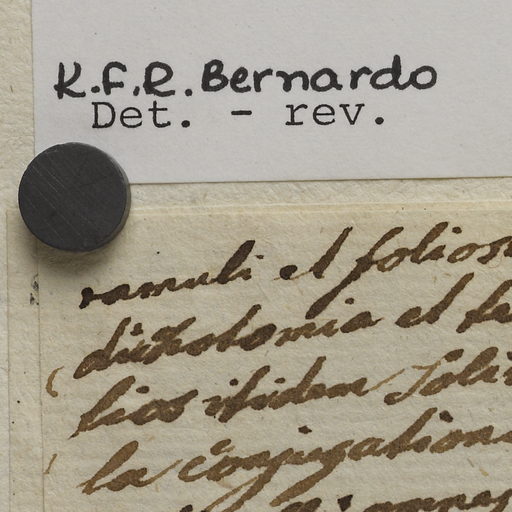 K.F.R. Bernardo
Det. - rev.
ramuli el folios
dichotomia el
lios itidem Soli
la Conjugation